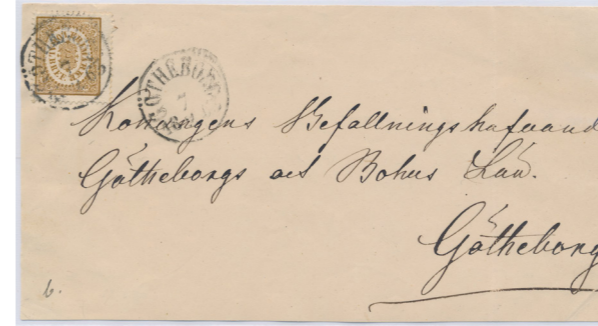 GÖTHEBORG
7
Konungens Befallningshafvand
Götheborgs och Bohus Län.
Götheborg
6.